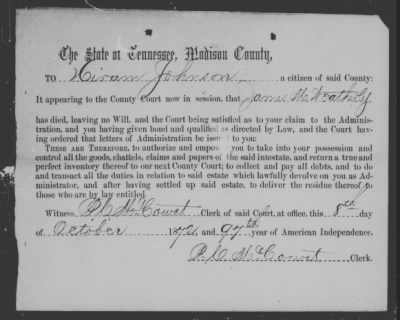 The State of Tennessee, Madison County,
TO Hiram Johnson a citizen of said County:
It appearing to the County Court now in session, that James W.
has died, leaving no Will, and the Court being satisfied as to your claim to the Adminis-
tration, and you having given bond and qualified as directed by Law, and the Court hav-
ing ordered that letters of Administration be issued to you:
THESE ARE THEREFORE, to authorize and empower you to take into your possession and
control all the goods, chattels, claims and papers of the said intestate, and return a true and
perfect inventory thereof to our next County Court; to collect and pay all debts, and to do
and transact all the duties in relation to said estate which lawfully devolve on you as Ad-
ministrator, and after having settled up said estate, to deliver the residue thereof to
those who are by law entitled.
Witness P. C. McCowat Clerk of said Court, at office, this 8th day
of October 1872, and 97th year of American Independence.
P. C. McCowat Clerk.